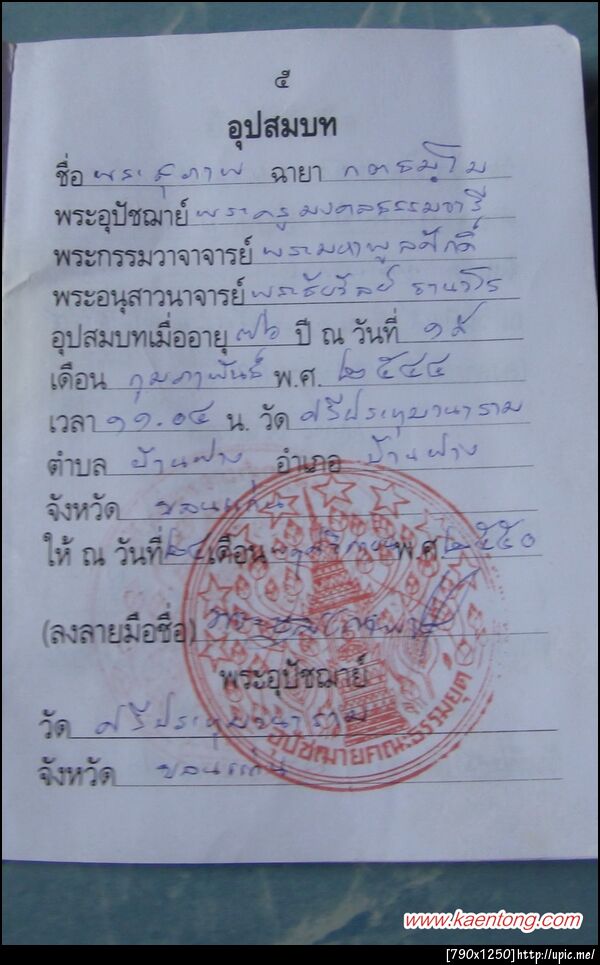 ๕
อุปสมบท
ชื่อ พระสุภาพ ฉายา กตธมฺโม
พระอุปัชฌาย์ พระครูมงคลธรรมจารี
พระกรรมวาจาจารย์ พระมหาพูลศักดิ์
พระอนุสาวนาจารย์ พระชัยวัลย์
อุปสมบทเมื่ออายุ ๗๖ ปี ณ วันที่ ๑๙
เดือน กุมภาพันธ์ พ.ศ. ๒๕๔๔
เวลา ๑๑.๐๔ น. วัด ศรีประทุมวนาราม
ตำบล บ้านฝาง อำเภอ บ้านฝาง
จังหวัด ขอนแก่น
ให้ ณ วันที่ ๒๔ เดือน พ.ศ. ๒๕๕๐
(ลงลายมือชื่อ)
พระอุปัชฌาย์
วัด ศรีประทุมวนาราม
อุปัชฌาย์คณะธรรมยุต
จังหวัด ขอนแก่น
www.kaentong.com
[790x1250]http://upic.me/